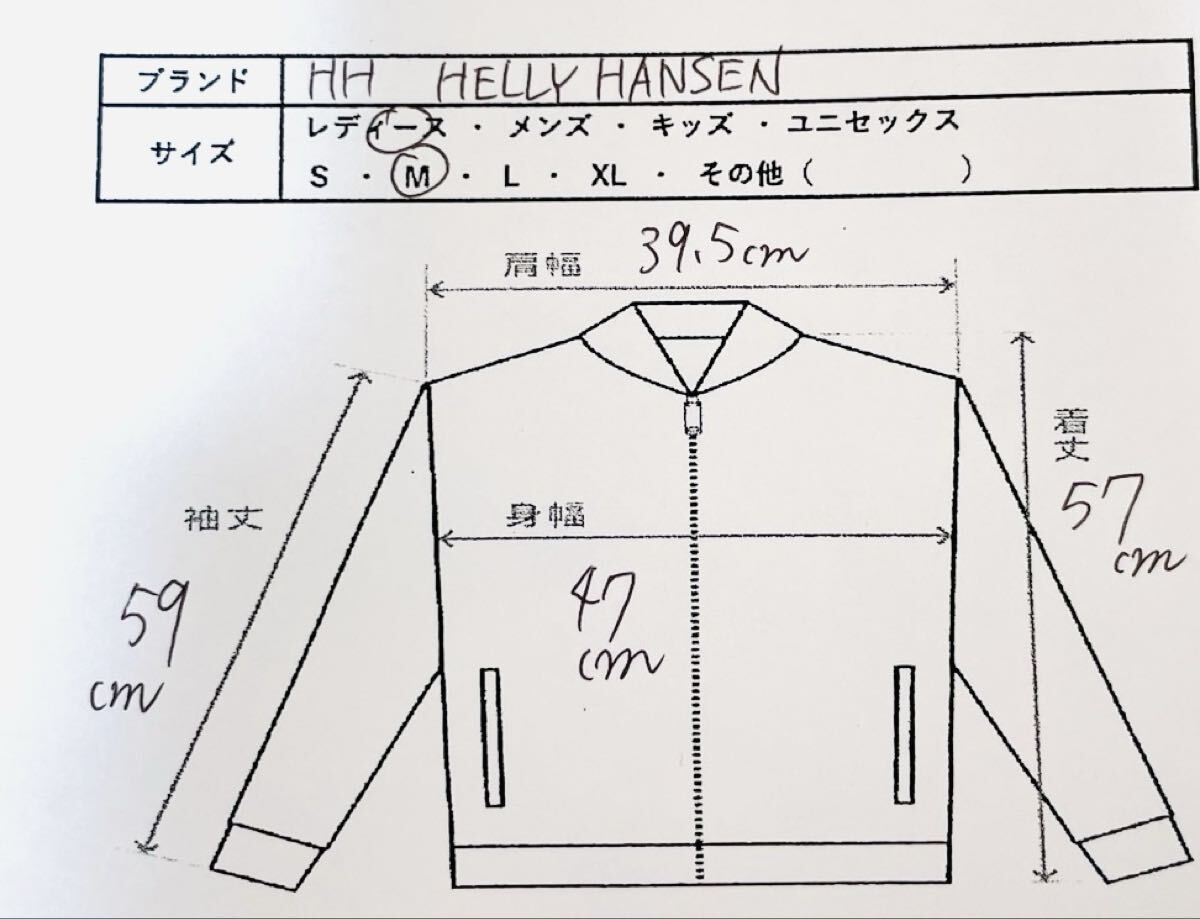 ブランド HH HELLY HANSEN
サイズ レディース・メンズ・キッズ・ユニセックス
S ・ M ・ L ・ XL ・ その他（ ）
肩幅 39.5cm
着丈
57
cm
袖丈
身幅
59
cm
47
cm